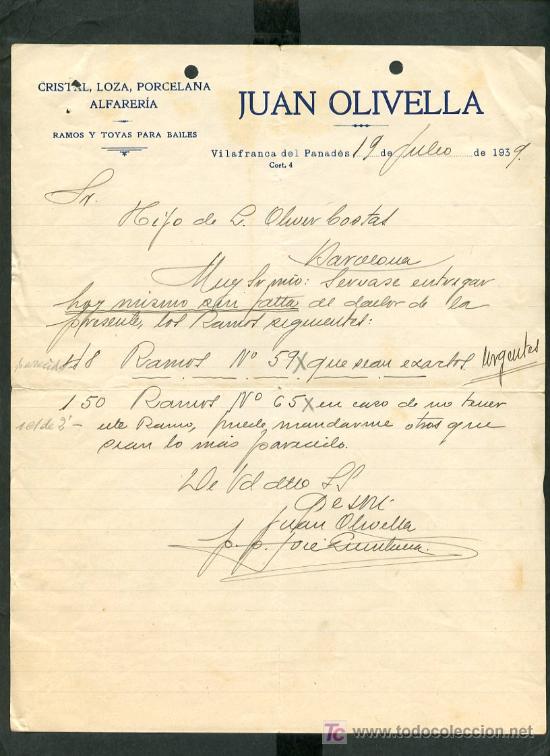 CRISTAL, LOZA, PORCELANA
ALFARERÍA
RAMOS Y TOYAS PARA BAILES
JUAN OLIVELLA
Vilafranca del Panadés 19 de Julio de 1939.
Cort, 4
Sr.
Hijo de L. Oliver Costas
Barcelona
Muy Sr. mío: Sirvase entregar
hoy mismo sin falta al dador de la
presente, los Ramos siguientes:
48 Ramos Nº 59 X que sean exactos Urgentes
150 Ramos Nº 65 X en caso de no tener
este Ramo, puede mandarme otros que
sean lo más parecido.
De Vd atto SS
Juan Olivella
p. p. José Quintana
todocoleccion
tc www.todocoleccion.net